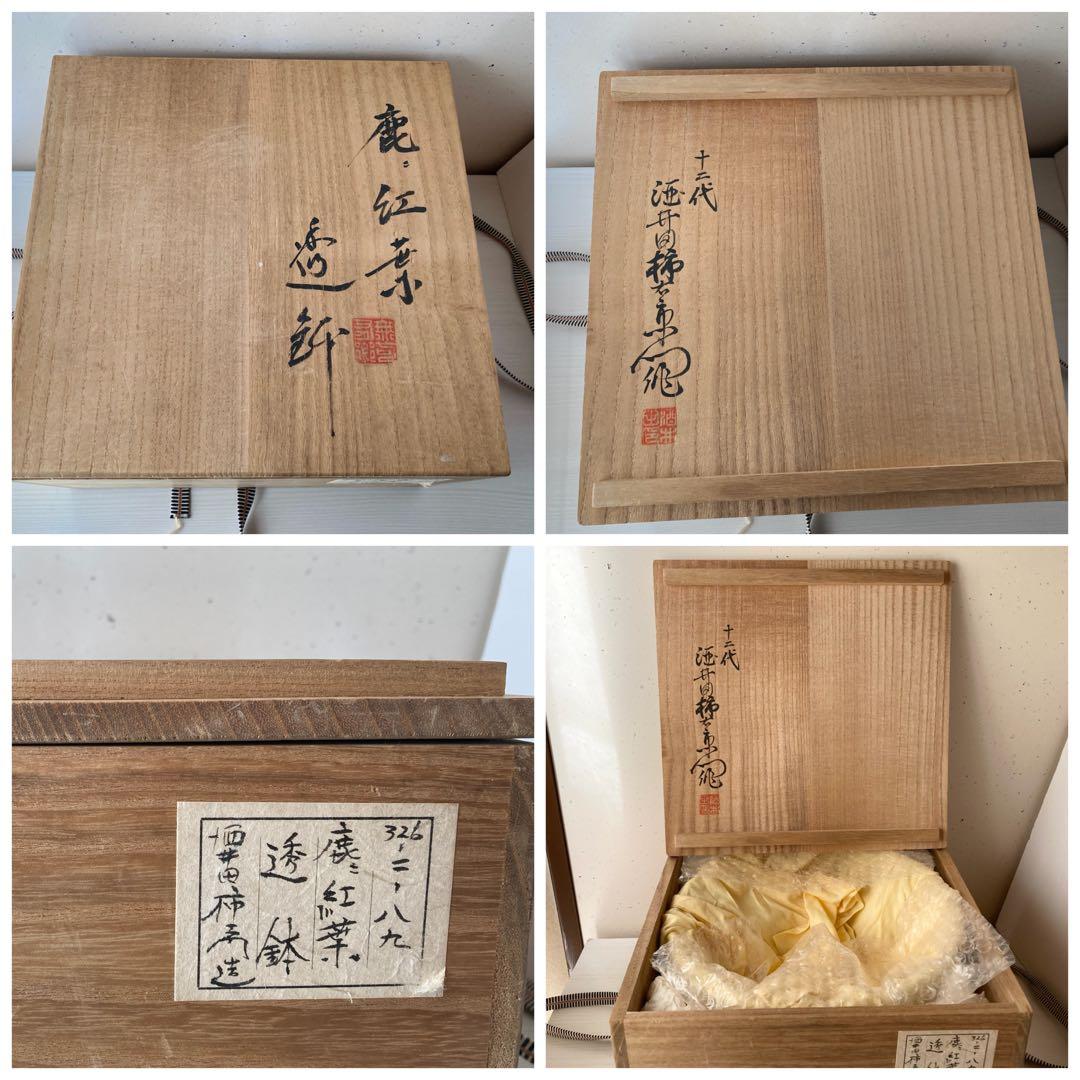 鹿ニ紅葉
透鉢
十二代
酒井田柿右衛門作
326-二-八九
鹿ニ紅葉
透鉢
酒井田柿右衛門造
十二代
酒井田柿右衛門作
326
鹿ニ紅葉
透